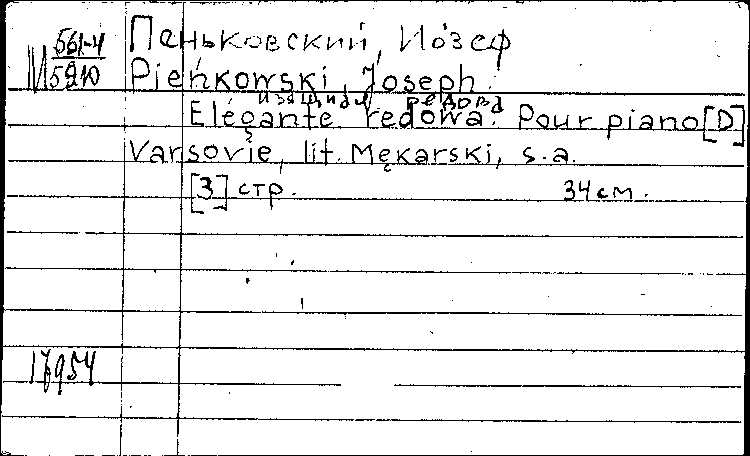 М 561-4
5910
Пеньковский, Иозеф
Pieńkowski, Joseph.
изящная редова
Elégante redowa. Pour piano [D]
Varsovie, lit. Mękarski, s.a.
[3] стр. 34 см.
17954